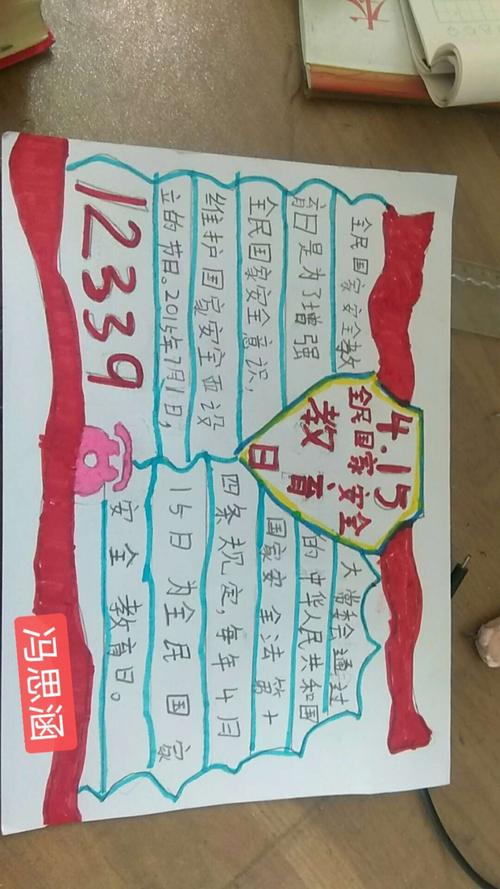 4.15
全民国家安全
教育
日
全民国家安全教
育日是为了增强
全民国家安全意识,
维护国家安全而设
立的节日。2015年7月1日,
12339
大常 通对
的中华人民共和国
国家安全法第十
四条规定,每年4月
15日为全民国家
安全教育日。
冯思涵